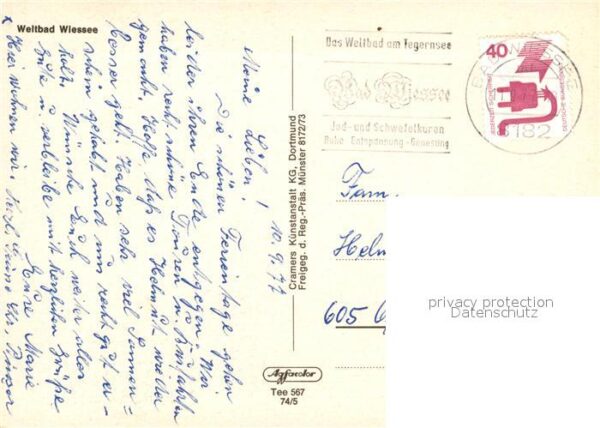 Weltbad Wiessee
10.9.77
Meine Lieben!
Die schönen Ferientage gehen
leider ihrem Ende entgegen. Wir
haben recht schöne Touren u.
gemacht. Hoffe daß es Helmut wieder
besser geht. Haben sehr viel Sonnen-
schein gehabt und uns recht gut er-
holt. Wünsche Euch weiter alles
Gute u. verbleibe mit herzlichen Grüße
Eure Marie
x Hier wohnen wir.
Cramers Kunstanstalt KG, Dortmund
Freigeg. d. Reg.-Präs. Münster 8172/73
Agfacolor
Tee 567
74/5
Das Weltbad am Tegernsee
Bad Wiessee
Jod- und Schwefelkuren
Ruhe - Entspannung - Genesung
40
DEUTSCHE BUNDESPOST
8182
Fam.
Helm
605
privacy protection
Datenschutz